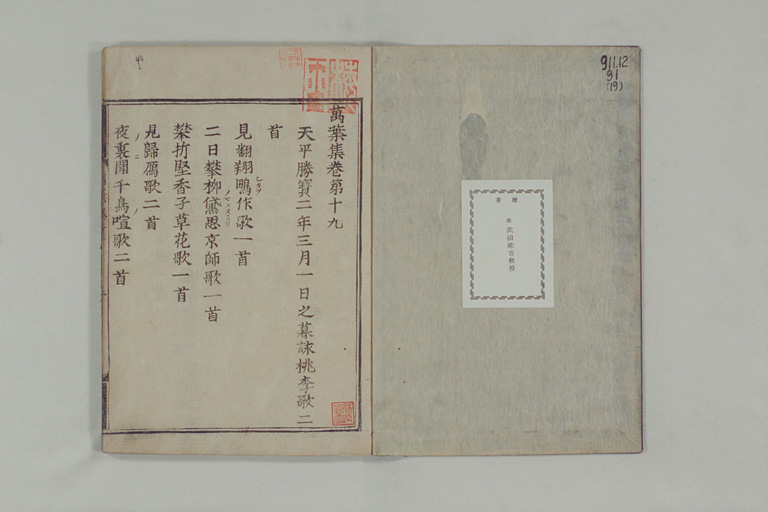 911.12
91
(19)
武田祐吉教授
萬葉集卷第十九
天平勝寶二年三月一日之暮詠桃李歌二
首
見翻翔鴫作歌一首
二日攀柳黛思京師歌一首
攀折堅香子草花歌一首
見歸鴈歌二首
夜裏聞千鳥喧歌二首